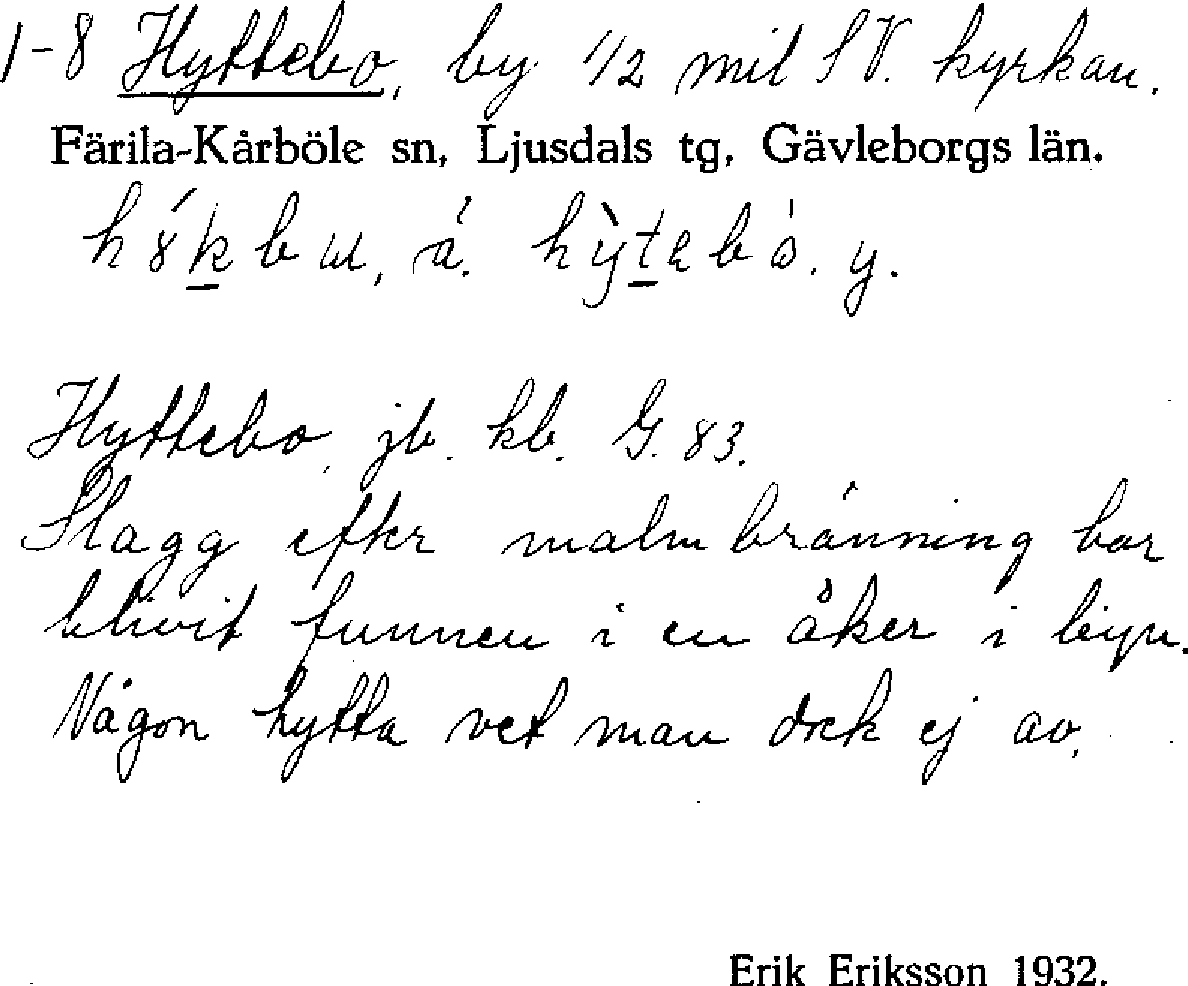 1-8 Hyttebo, by 1/2 mil SV. kyrkan.
Färila-Kårböle sn, Ljusdals tg, Gävleborgs län.
y.
Hyttebo, jb. kb. G. 83.
Slagg efter malmbränning har
blivit funnen i en åker i byn.
Någon hytta vet man dock ej av.
Erik Eriksson 1932.